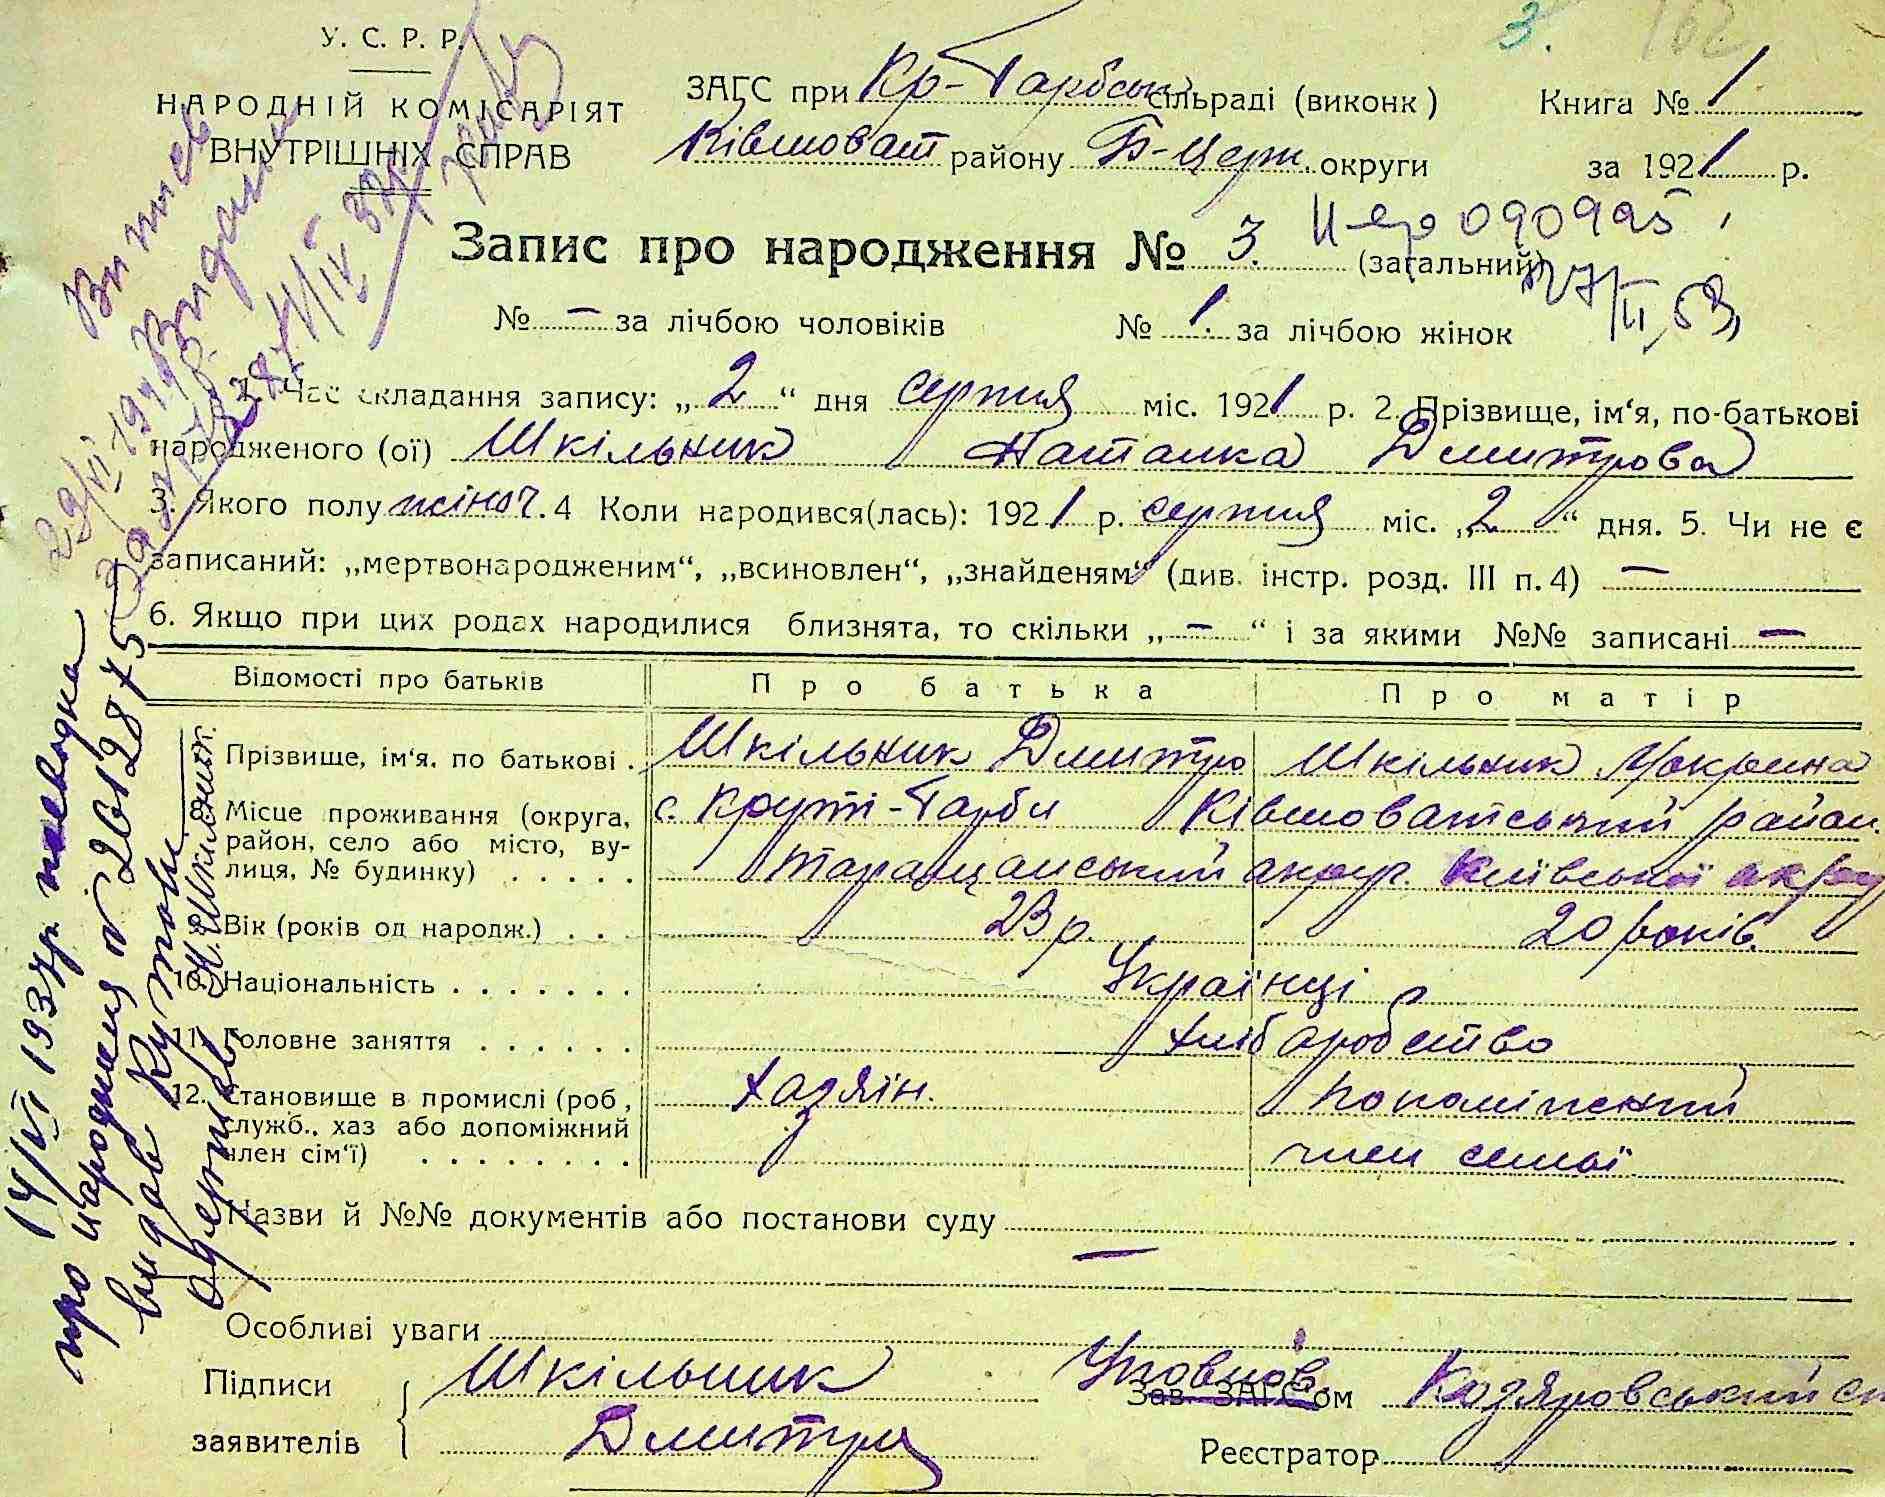 3. 162
У. С. Р. Р.
НАРОДНІЙ КОМІСАРІЯТ
ВНУТРІШНІХ СПРАВ
ЗАГС при Кр-Гарбськ сільраді (виконк)
Книга № 1
Ківшоват району Б-Церк. округи
за 1921 р.
Запис про народження № 3. (загальний)
090995
27/II 53
№ — за лічбою чоловіків № 1. за лічбою жінок
1. Час складання запису: „2“ дня серпня міс. 1921 р. 2. Прізвище, ім‘я, по-батькові
народженого (ої) Шкільник Наталка Дмитрова
3. Якого полу жіноч. 4 Коли народився(лась): 1921 р. серпня міс. „2“ дня. 5. Чи не є
записаний: „мертвонародженим“, „всиновлен“, „знайденям“ (див. інстр. розд. III п. 4) —
6. Якщо при цих родах народилися близнята, то скільки „—“ і за якими №№ записані —
Відомості про батьків Про батька Про матір
Прізвище, ім‘я, по батькові . Шкільник Дмитро Шкільник Мокрина
8. Місце проживання (округа, район, село або місто, ву-
лиця, № будинку) . . . . .
с. Круті-Гарби Ківшоватський район.
Таращанський округ. Київської округ
9. Вік (років од народж.) . . 23 р. 20 років.
10. Національність . . . . . . . Українці
11. Головне заняття . . . . . . Хліборобство
12. Становище в промислі (роб.,
служб., хаз або допоміжний
член сім‘ї) . . . . . . . .
Хазяїн. Допоміжний
член семьї
Назви й №№ документів або постанови суду
—
Особливі уваги
Підписи
заявителів
Шкільник
Дмитро
Уповнов.
Зав. ЗАГС‘ом Козяровський
Реєстратор
14/VI 1937р.
про народження № 2012875
видав
одержав Н. Шкільник.